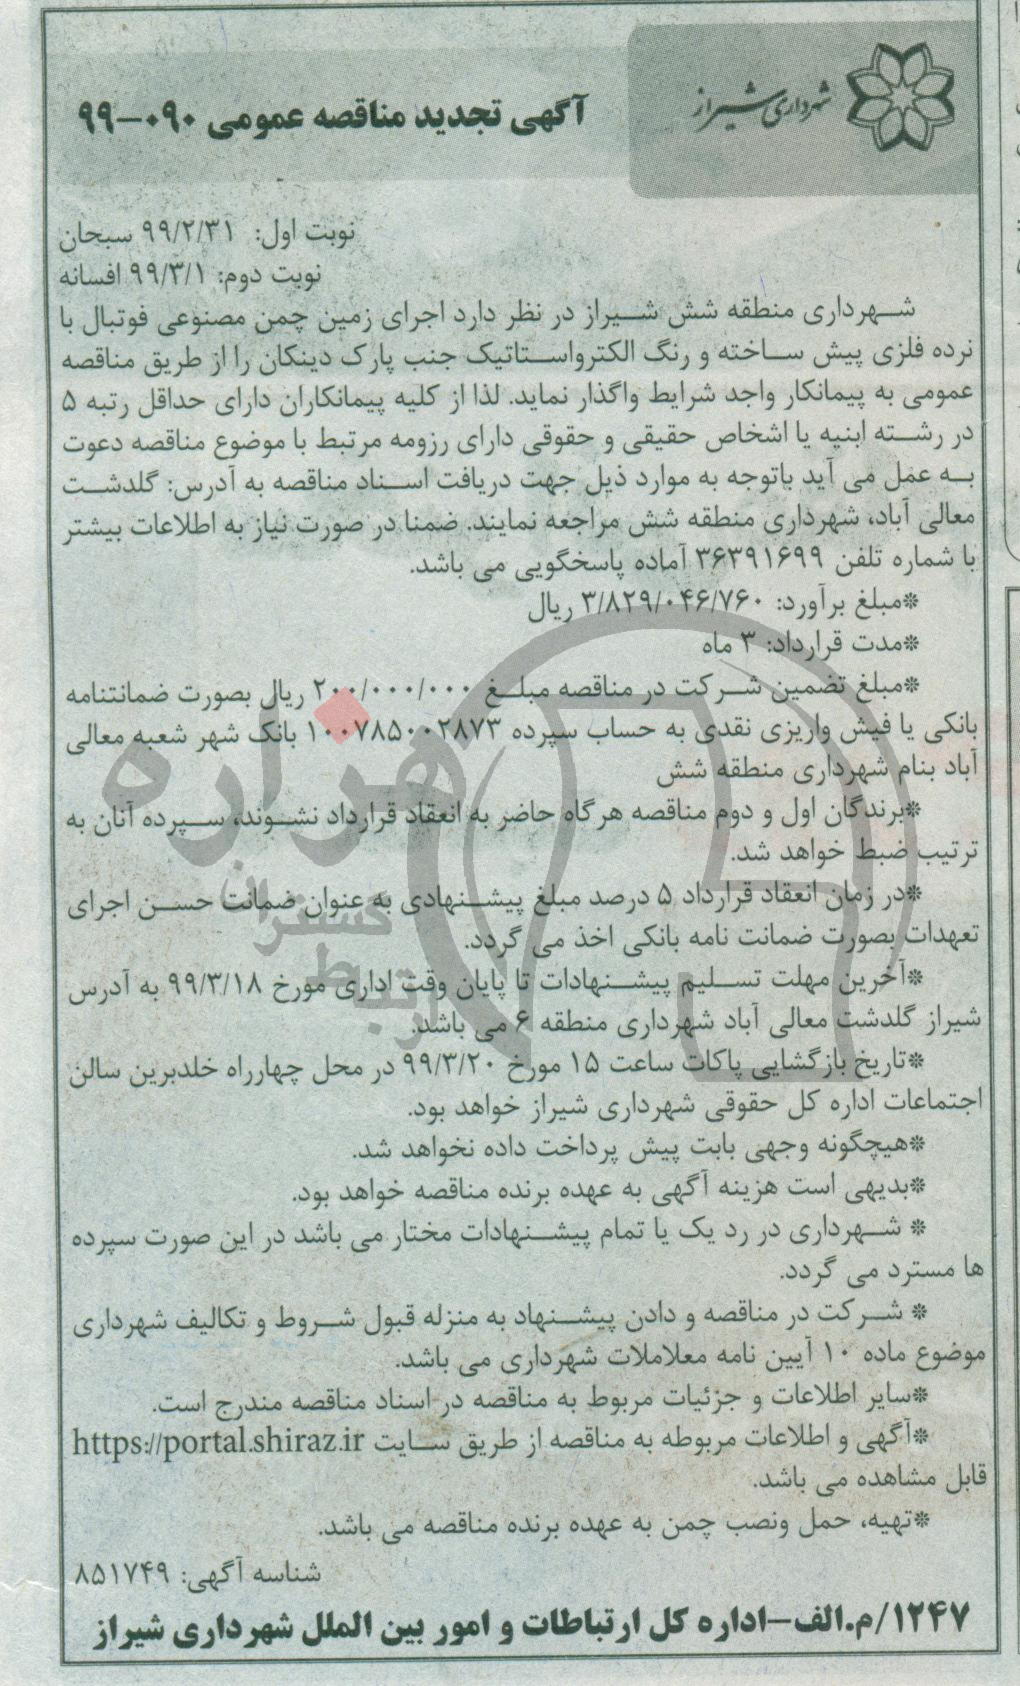 شهرداری شیراز
آگهی تجدید مناقصه عمومی ۰۹۰-۹۹
نوبت اول: ۹۹/۲/۳۱ سبحان
نوبت دوم: ۹۹/۳/۱ افسانه
شهرداری منطقه شش شیراز در نظر دارد اجرای زمین چمن مصنوعی فوتبال با
نرده فلزی پیش ساخته و رنگ الکترواستاتیک جنب پارک دینکان را از طریق مناقصه
عمومی به پیمانکار واجد شرایط واگذار نماید. لذا از کلیه پیمانکاران دارای حداقل رتبه ۵
در رشته ابنیه یا اشخاص حقیقی و حقوقی دارای رزومه مرتبط با موضوع مناقصه دعوت
به عمل می آید باتوجه به موارد ذیل جهت دریافت اسناد مناقصه به آدرس: گلدشت
معالی آباد، شهرداری منطقه شش مراجعه نمایند. ضمنا در صورت نیاز به اطلاعات بیشتر
با شماره تلفن ۳۶۳۹۱۶۹۹ آماده پاسخگویی می باشد.
*مبلغ برآورد: ۳/۸۲۹/۰۴۶/۷۶۰ ریال
*مدت قرارداد: ۳ ماه
*مبلغ تضمین شرکت در مناقصه مبلغ ۲۰۰/۰۰۰/۰۰۰ ریال بصورت ضمانتنامه
بانکی یا فیش واریزی نقدی به حساب سپرده ۱۰۰۷۸۵۰۰۲۸۷۳ بانک شهر شعبه معالی
آباد بنام شهرداری منطقه شش
*برندگان اول و دوم مناقصه هرگاه حاضر به انعقاد قرارداد نشوند، سپرده آنان به
ترتیب ضبط خواهد شد.
*در زمان انعقاد قرارداد ۵ درصد مبلغ پیشنهادی به عنوان ضمانت حسن اجرای
تعهدات بصورت ضمانت نامه بانکی اخذ می گردد.
*آخرین مهلت تسلیم پیشنهادات تا پایان وقت اداری مورخ ۹۹/۳/۱۸ به آدرس
شیراز گلدشت معالی آباد شهرداری منطقه ۶ می باشد.
*تاریخ بازگشایی پاکات ساعت ۱۵ مورخ ۹۹/۳/۲۰ در محل چهارراه خلدبرین سالن
اجتماعات اداره کل حقوقی شهرداری شیراز خواهد بود.
*هیچگونه وجهی بابت پیش پرداخت داده نخواهد شد.
*بدیهی است هزینه آگهی به عهده برنده مناقصه خواهد بود.
* شهرداری در رد یک یا تمام پیشنهادات مختار می باشد در این صورت سپرده
ها مسترد می گردد.
* شرکت در مناقصه و دادن پیشنهاد به منزله قبول شروط و تکالیف شهرداری
موضوع ماده ۱۰ آیین نامه معلاملات شهرداری می باشد.
*سایر اطلاعات و جزئیات مربوط به مناقصه در اسناد مناقصه مندرج است.
*آگهی و اطلاعات مربوطه به مناقصه از طریق سایت https://portal.shiraz.ir
قابل مشاهده می باشد.
*تهیه، حمل ونصب چمن به عهده برنده مناقصه می باشد.
شناسه آگهی: ۸۵۱۷۴۹
۱۲۴۷/م.الف-اداره کل ارتباطات و امور بین الملل شهرداری شیراز
هزاره
گستران
ارتباط